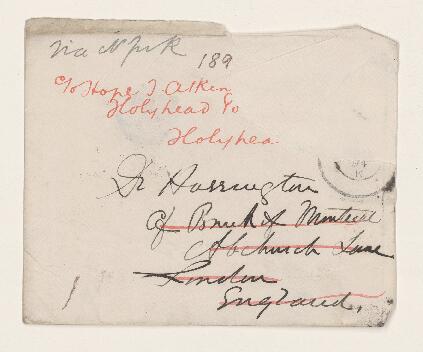 via N York
189
c/o Hope T Aitken
Holyhead Yo
Holyhea
Dr Harrington
c/o Bank of Montreal
Abchurch Lane
London
England,